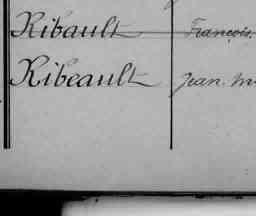 Ribault François.
Ribeault Jean. M